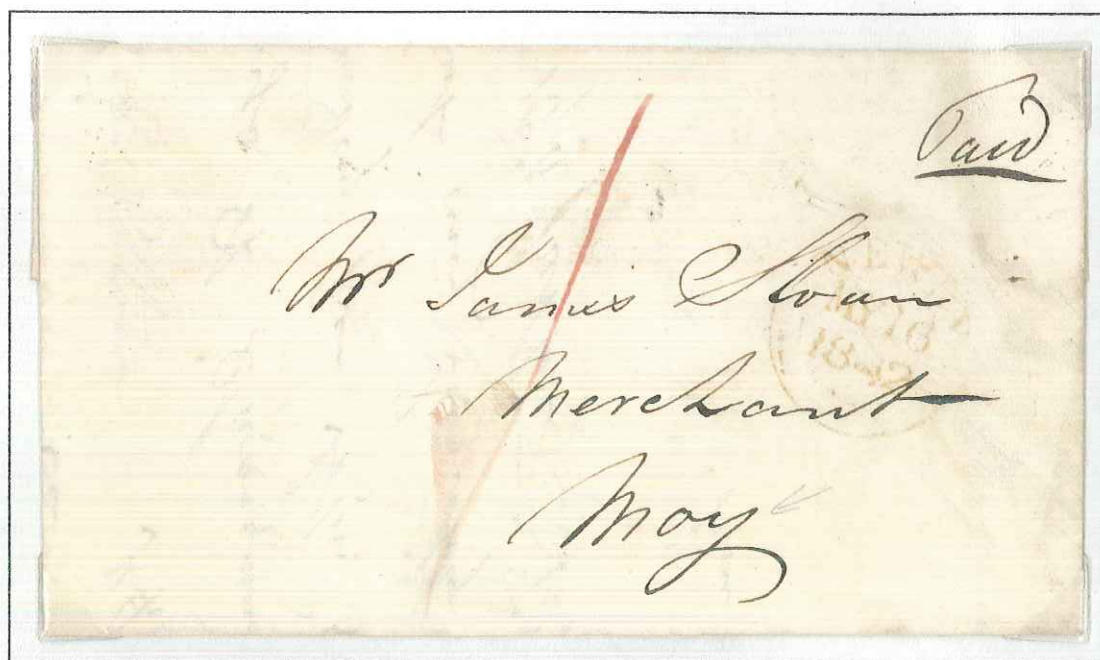 Paid
Mr James Sloan
Merchant
Moy
1842